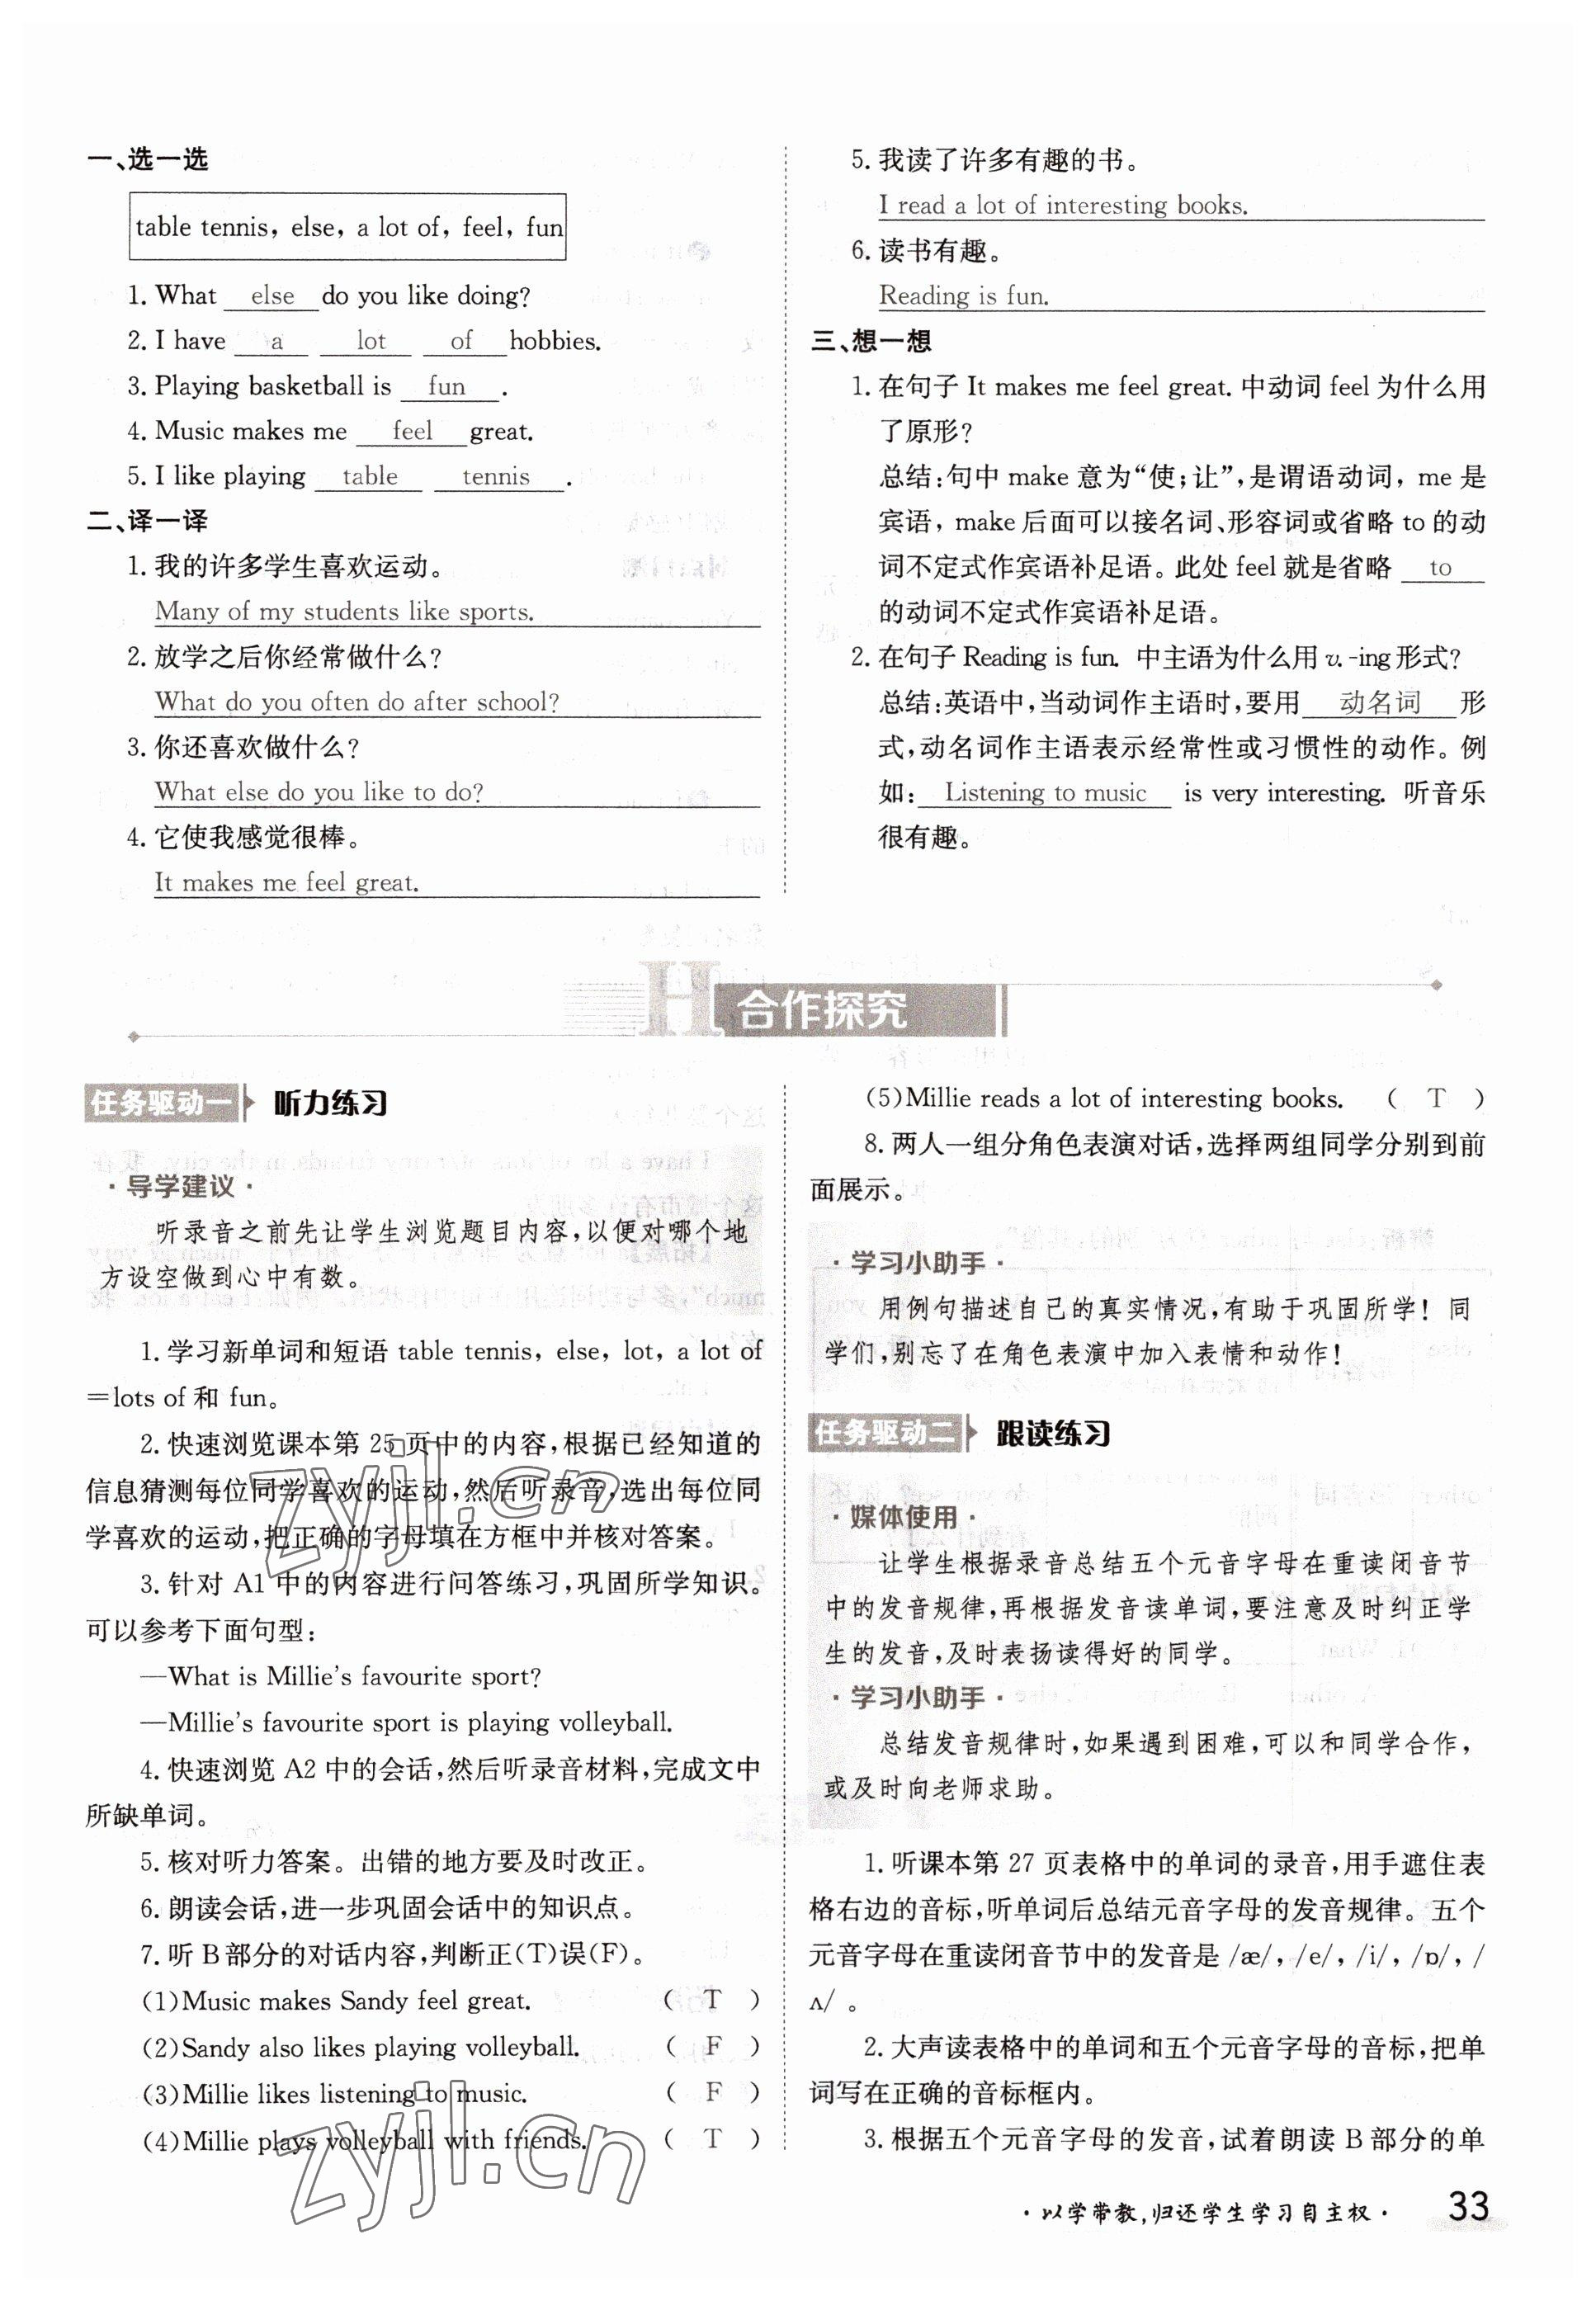 一、选一选
table tennis, else, a lot of, feel, fun
1. What else do you like doing?
2. I have a lot of hobbies.
3. Playing basketball is fun .
4. Music makes me feel great.
5. I like playing table tennis .
二、译一译
1. 我的许多学生喜欢运动。
Many of my students like sports.
2. 放学之后你经常做什么?
What do you often do after school?
3. 你还喜欢做什么?
What else do you like to do?
4. 它使我感觉很棒。
It makes me feel great.
5. 我读了许多有趣的书。
I read a lot of interesting books.
6. 读书有趣。
Reading is fun.
三、想一想
1. 在句子 It makes me feel great. 中动词 feel 为什么用
了原形?
总结:句中 make 意为“使;让”,是谓语动词, me 是
宾语, make 后面可以接名词、形容词或省略 to 的动
词不定式作宾语补足语。此处 feel 就是省略 to
的动词不定式作宾语补足语。
2. 在句子 Reading is fun. 中主语为什么用 v. -ing 形式?
总结:英语中,当动词作主语时,要用 动名词 形
式,动名词作主语表示经常性或习惯性的动作。例
如: Listening to music is very interesting. 听音乐
很有趣。
H 合作探究
任务驱动一 听力练习
·导学建议·
听录音之前先让学生浏览题目内容,以便对哪个地
方设空做到心中有数。
1. 学习新单词和短语 table tennis, else, lot, a lot of
=lots of 和 fun。
2. 快速浏览课本第 25 页中的内容,根据已经知道的
信息猜测每位同学喜欢的运动,然后听录音,选出每位同
学喜欢的运动,把正确的字母填在方框中并核对答案。
3. 针对 A1 中的内容进行问答练习,巩固所学知识。
可以参考下面句型:
—What is Millie's favourite sport?
—Millie's favourite sport is playing volleyball.
4. 快速浏览 A2 中的会话,然后听录音材料,完成文中
所缺单词。
5. 核对听力答案。出错的地方要及时改正。
6. 朗读会话,进一步巩固会话中的知识点。
7. 听 B 部分的对话内容,判断正(T)误(F)。
(1)Music makes Sandy feel great. ( T )
(2)Sandy also likes playing volleyball. ( F )
(3)Millie likes listening to music. ( F )
(4)Millie plays volleyball with friends. ( T )
(5)Millie reads a lot of interesting books. ( T )
8. 两人一组分角色表演对话,选择两组同学分别到前
面展示。
·学习小助手·
用例句描述自己的真实情况,有助于巩固所学!同
学们,别忘了在角色表演中加入表情和动作!
任务驱动二 跟读练习
·媒体使用·
让学生根据录音总结五个元音字母在重读闭音节
中的发音规律,再根据发音读单词,要注意及时纠正学
生的发音,及时表扬读得好的同学。
·学习小助手·
总结发音规律时,如果遇到困难,可以和同学合作,
或及时向老师求助。
1. 听课本第 27 页表格中的单词的录音,用手遮住表
格右边的音标,听单词后总结元音字母的发音规律。五个
元音字母在重读闭音节中的发音是 /æ/, /e/, /i/, /ɒ/, /
ʌ/ 。
2. 大声读表格中的单词和五个元音字母的音标,把单
词写在正确的音标框内。
3. 根据五个元音字母的发音,试着朗读 B 部分的单
·以学带教,归还学生学习自主权· 33
zyjl.cn
zyjl.cn